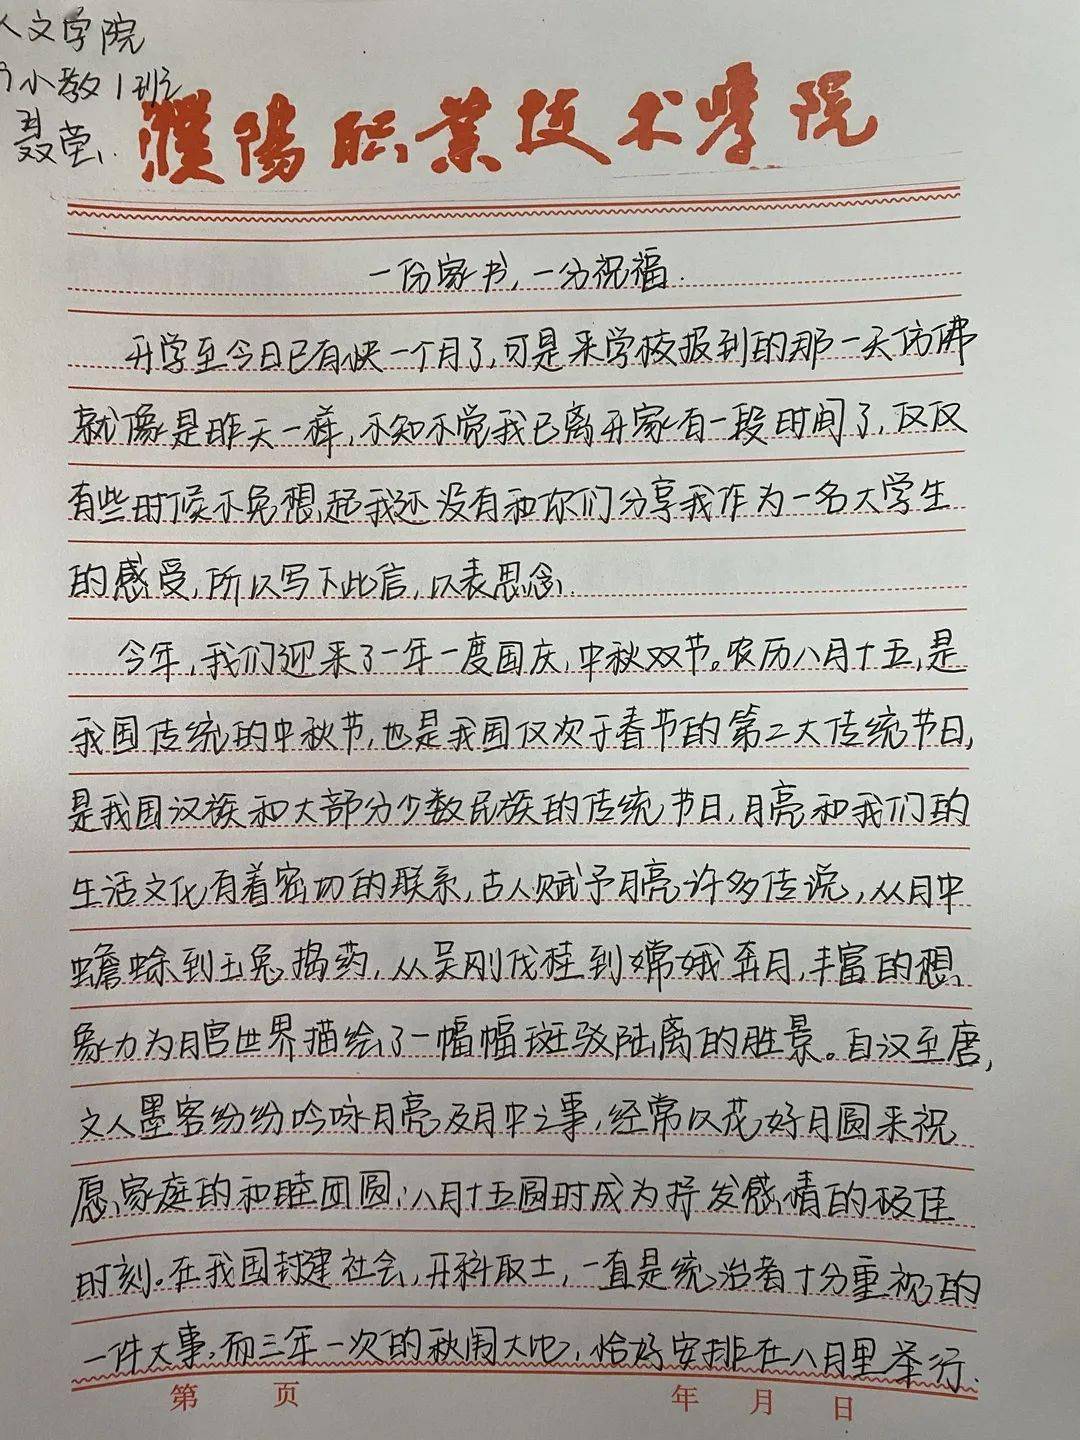 人文学院
小教1班
聂莹
濮陽职業技术学院
一份家书，一分祝福.
开学至今日已有快一个月了，可是来学校报到的那一天仿佛
就像是昨天一样，不知不觉我已离开家有一段时间了，仅仅
有些时候不免想起我还没有和你们分享我作为一名大学生
的感受，所以写下此信，以表思念.
今年，我们迎来了一年一度国庆，中秋双节。农历八月十五，是
我国传统的中秋节，也是我国仅次于春节的第二大传统节日，
是我国汉族和大部分少数民族的传统节日，月亮和我们的
生活文化有着密切的联系，古人赋予月亮许多传说，从月中
蟾蜍到玉兔捣药，从吴刚伐桂到嫦娥奔月，丰富的想
象力为月宫世界描绘了一幅幅斑驳陆离的胜景。自汉至唐，
文人墨客纷纷吟咏月亮及月中之事，经常以花好月圆来祝
愿家庭的和睦团圆；八月十五圆时成为抒发感情的极佳
时刻。在我国封建社会，开科取士，一直是统治者十分重视的
一件大事，而三年一次的秋闱大比，恰好安排在八月里举行.
第 页 年 月 日